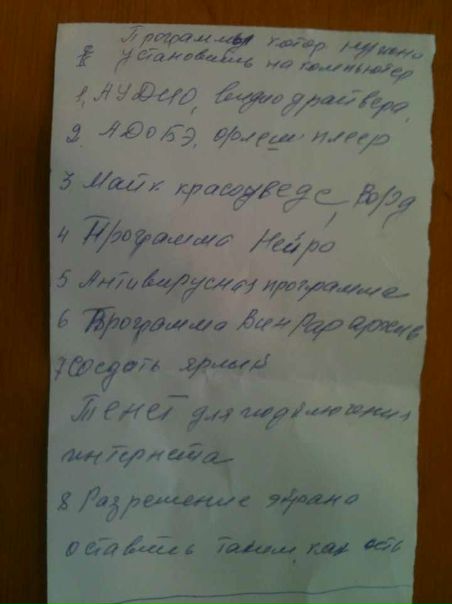 Программы котор нужно
установить на компьютер
1, АУДИО, видиодрайвера,
2. АДОБЭ, флеш плеер
3 Майк красоуведс, Ворд
4 Программа Нейро
5 Антивирусная программа
6 Программа Вин Рар архив
7 Создать ярлык
Тенет для подключения
интернета
8 Разрешение экрана
оставить таким как есть